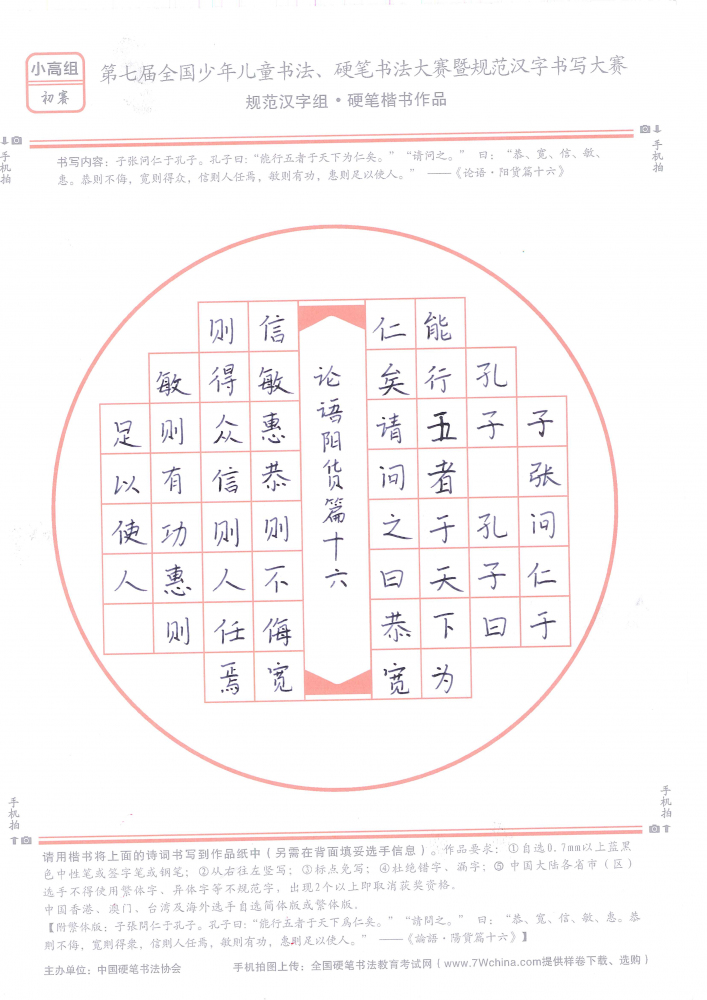 小高组
初赛
第七届全国少年儿童书法、硬笔书法大赛暨规范汉字书写大赛
规范汉字组•硬笔楷书作品
手机拍
手机拍
书写内容：子张问仁于孔子。孔子曰：“能行五者于天下为仁矣。”“请问之。” 曰：“恭、宽、信、敏、
惠。恭则不侮，宽则得众，信则人任焉，敏则有功，惠则足以使人。” ——《论语·阳货篇十六》
子张问仁于
孔子 孔子曰
能行五者于天下为
仁矣请问之曰恭宽
论语阳货篇十六
信敏惠恭则不侮宽
则得众信则人任焉
敏则有功惠则
足以使人
手机拍
手机拍
请用楷书将上面的诗词书写到作品纸中（另需在背面填妥选手信息）。作品要求：①自选0.7mm以上蓝黑
色中性笔或签字笔或钢笔；②从右往左竖写；③标点免写；④杜绝错字、漏字；⑤中国大陆各省市（区）
选手不得使用繁体字、异体字等不规范字，出现2个以上即取消获奖资格。
中国香港、澳门、台湾及海外选手自选简体版或繁体版。
【附繁体版：子張問仁于孔子。孔子曰：“能行五者于天下爲仁矣。”“請問之。” 曰：“恭、宽、信、敏、惠。恭
則不侮，宽則得衆，信則人任焉，敏則有功，惠則足以使人。” ——《論語·陽貨篇十六》】
主办单位：中国硬笔书法协会
手机拍图上传：全国硬笔书法教育考试网（www.7Wchina.com提供样卷下载、选购）